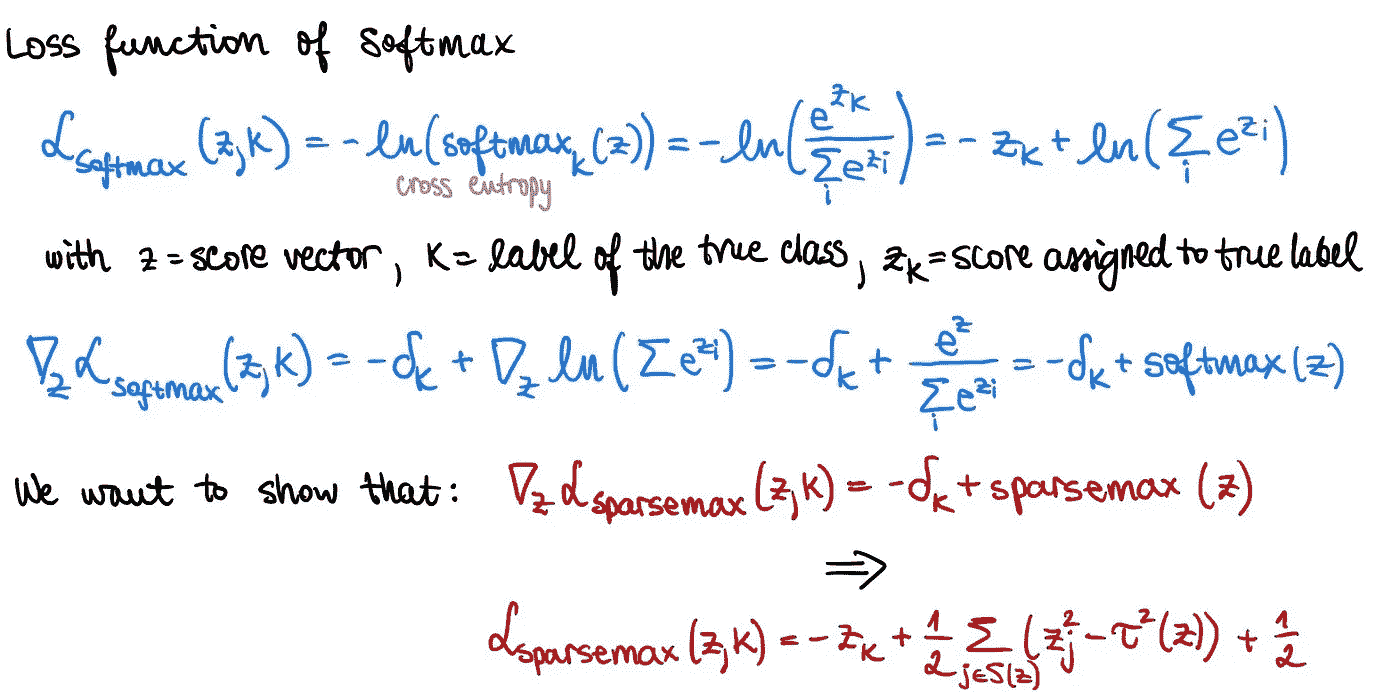 Loss function of Softmax
ℒ_softmax (z, k) = - ln(softmax_k (z)) = - ln(e^{z_k} / Σ_i e^{z_i}) = - z_k + ln(Σ_i e^{z_i})
cross entropy
with z = score vector, k = label of the true class, z_k = score assigned to true label
∇_z ℒ_softmax (z, k) = - δ_k + ∇_z ln(Σ e^{z_i}) = - δ_k + e^z / Σ_i e^{z_i} = - δ_k + softmax (z)
We want to show that: ∇_z ℒ_sparsemax (z, k) = - δ_k + sparsemax (z)
⇒
ℒ_sparsemax (z, k) = - z_k + 1/2 Σ_{j∈S(z)} (z_j^2 - τ^2(z)) + 1/2